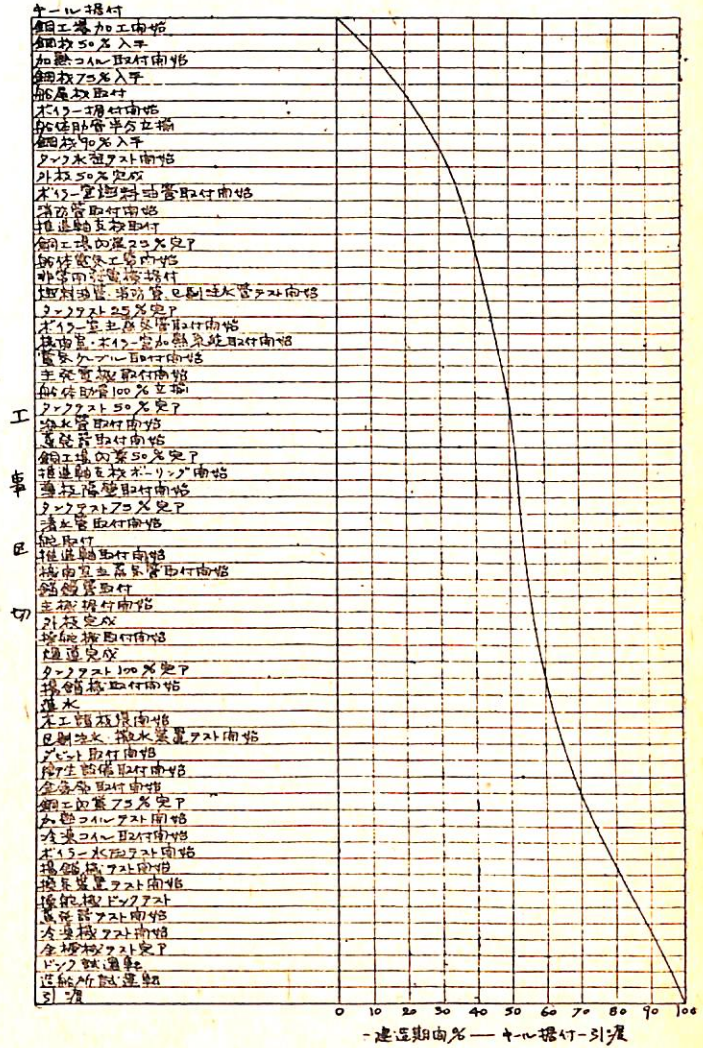 キール据付
銅工場加工開始
鋼材50%入手
加熱コイル取付開始
鋼材75%入手
船尾材取付
ボイラー据付開始
船体肋骨半分立揃
鋼材90%入手
タンク水圧テスト開始
外板50%完成
ボイラー室燃料油管取付開始
消防管取付開始
推進軸支材取付
銅工場内業25%完了
船体電気工事開始
非常用発電機据付
燃料油管・消防管・
テスト開始
タンクテスト25%完了
ボイラー室主蒸気管取付開始
機関室・ボイラー室加熱系統取付開始
電気ケーブル取付開始
主発電機取付開始
船体肋骨100%立揃
タンクテスト50%完了
海水管取付開始
蒸発器取付開始
銅工場内業50%完了
推進軸支材ボーリング開始
取付開始
タンクテスト75%完了
清水管取付開始
舵取付
推進軸取付開始
機関室主蒸気管取付開始
錨鎖管取付
主機据付開始
外板完成
操舵機取付開始
煙道完成
タンクテスト100%完了
揚錨機取付開始
進水
木工
開始
撒水装置テスト開始
ダビット取付開始
衛生設備取付開始
取付開始
銅工内業75%完了
加熱コイルテスト開始
冷凍コイル取付開始
ボイラー水圧テスト開始
揚錨機テスト開始
換気装置テスト開始
操舵機ドックテスト
蒸発器テスト開始
冷凍機テスト開始
全機械テスト完了
ドック試運転
造船所試運転
引渡
工事区切
0 10 20 30 40 50 60 70 80 90 100
-建造期間%—キール据付-引渡